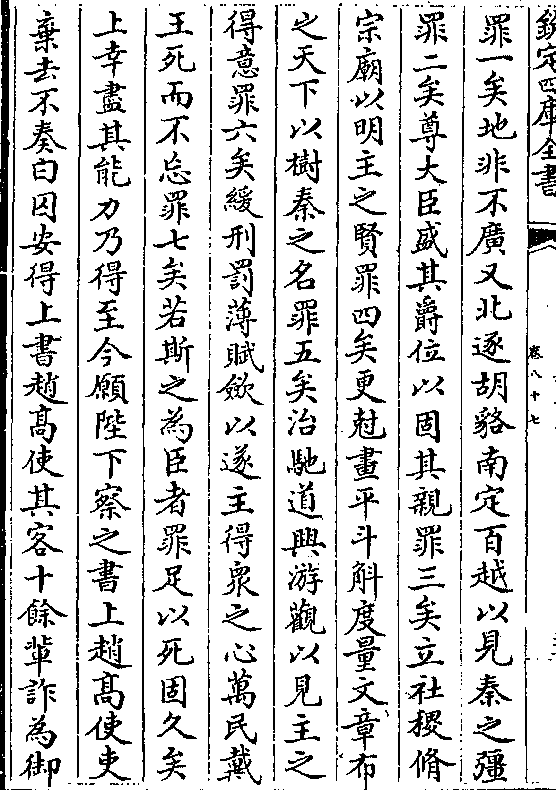 欽定四庫全書
卷八十七
罪一矣地非不廣又北逐胡貉南定百越以見秦之彊
罪二矣尊大臣盛其爵位以固其親罪三矣立社稷脩
宗廟以明主之賢罪四矣更尅畫平斗斛度量文章布
之天下以樹秦之名罪五矣治馳道興游觀以見主之
得意罪六矣緩刑罰薄賦斂以遂主得衆之心萬民戴
王死而不忘罪七矣若斯之為臣者罪足以死固久矣
上幸盡其能力乃得至今願陛下察之書上趙高使吏
棄去不奏曰囚安得上書趙高使其客十餘輩詐為御